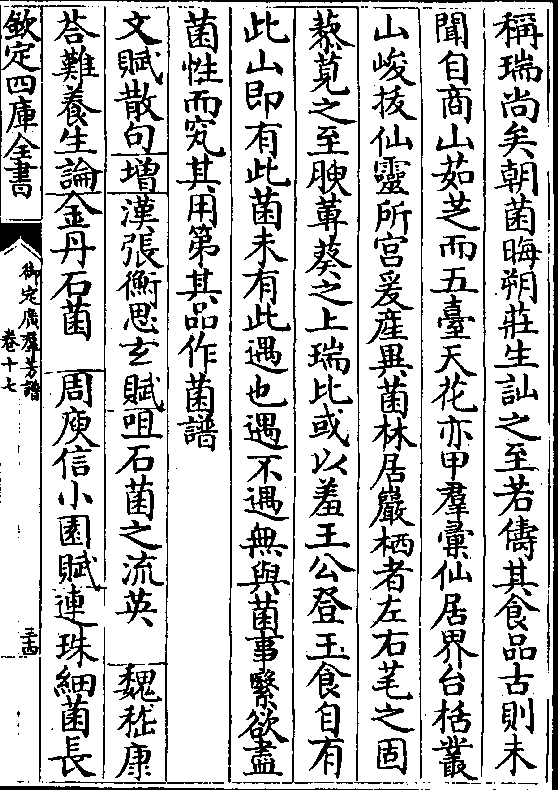 稱瑞尚矣朝菌晦朔莊生訕之至若儔其食品古則未
聞自商山茹芝而五臺天花亦甲羣彙仙居界台栝叢
山峻拔仙靈所宮爰産異菌林居巖栖者左右芼之固
藜莧之至腴蓴葵之上瑞比或以羞王公登玉食自有
此山即有此菌未有此遇也遇不遇無與菌事繄欲盡
菌性而究其用第其品作菌譜
文賦散句增漢張衡思玄賦咀石菌之流英　魏嵇康
荅難養生論金丹石菌　周庾信小園賦連珠細菌長
欽定四庫全書
御定廣羣芳譜
卷十七
三十四